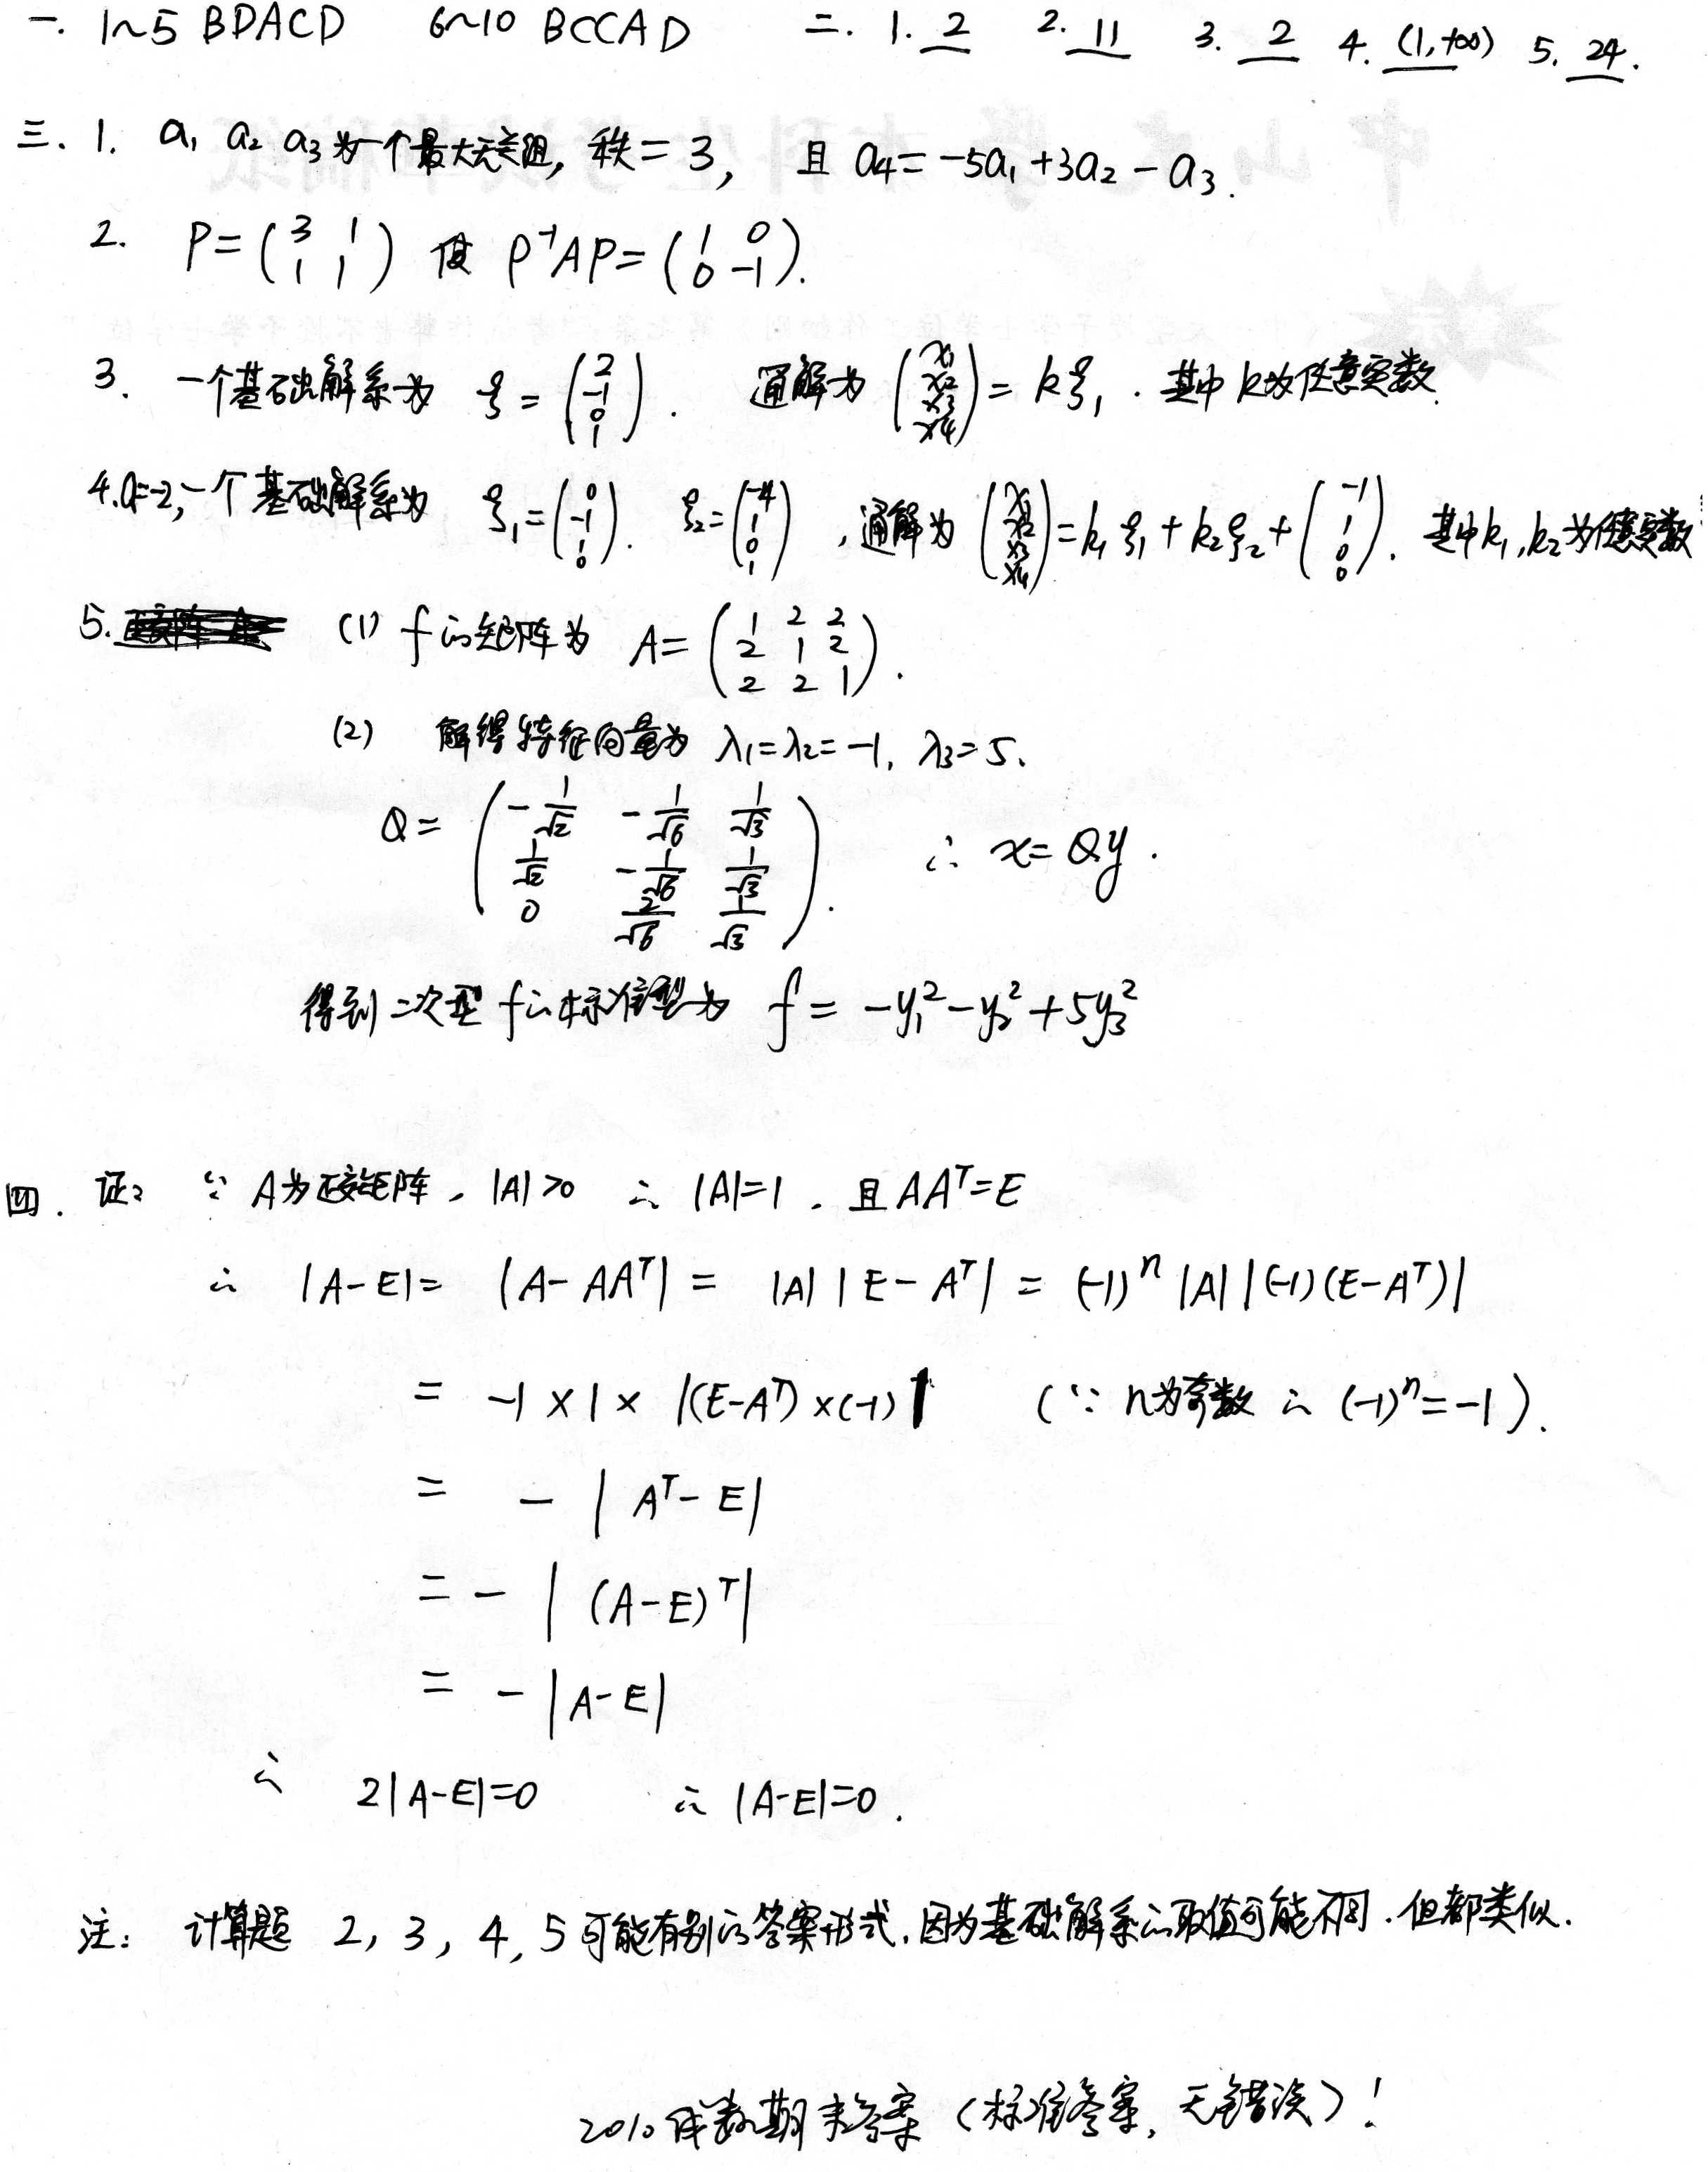 一. 1~5 BDACD 6~10 BCCAD 二. 1. 2 2. 11 3. 2 4. (1,+∞) 5. 24.
三. 1. a₁ a₂ a₃为一个最大无关组, 秩=3, 且 a₄=-5a₁+3a₂-a₃.
2. P=(3 1; 1 1) 使 P⁻¹AP=(1 0; 0 -1).
3. 一个基础解系为 ξ=(2; -1; 0; 1). 通解为 (x₁; x₂; x₃; x₄)=kξ₁. 其中 k为任意实数.
4. a=-2, 一个基础解系为 ξ₁=(0; -1; 1; 0). ξ₂=(-4; 1; 0; 1), 通解为 (x₁; x₂; x₃; x₄)=k₁ξ₁+k₂ξ₂+(-1; 1; 0; 0). 其中k₁,k₂为任意实数
5. (1) f的矩阵为 A=(1 2 2; 2 1 2; 2 2 1).
(2) 解得特征向量为 λ₁=λ₂=-1, λ₃=5.
Q=(-1/√2 -1/√6 1/√3; 1/√2 -1/√6 1/√3; 0 2/√6 1/√3). ∴ x=Qy.
得到二次型f的标准型为 f=-y₁²-y₂²+5y₃²
四. 证: ∵ A为正交矩阵, |A|>0 ∴ |A|=1. 且AAᵀ=E
∴ |A-E|= |A-AAᵀ| = |A| |E-Aᵀ| = (-1)ⁿ |A| |(-1)(E-Aᵀ)|
= -1×1× |(E-Aᵀ)×(-1)| (∵ n为奇数 ∴ (-1)ⁿ=-1).
= - |Aᵀ-E|
= - |(A-E)ᵀ|
= - |A-E|
∴ 2|A-E|=0 ∴ |A-E|=0.
注: 计算题 2, 3, 4, 5可能有别的答案形式, 因为基础解系的取值可能不同. 但都类似.
2010 期末答案 (标准答案, 无错误)!